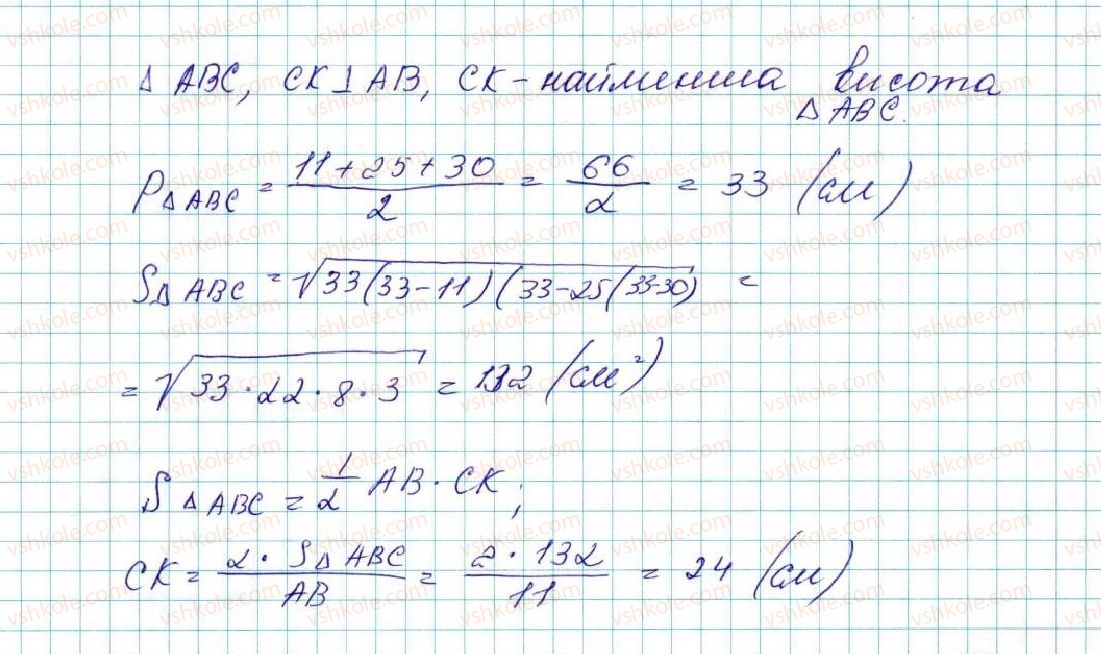 △ ABC, CK ⊥ AB, CK - найменша висота
△ ABC.
P△ABC = (11 + 25 + 30)/2 = 66/2 = 33 (см)
S△ABC = √33(33-11)(33-25(33-30) =
= √33 · 22 · 8 · 3 = 132 (см²)
S△ABC = 1/2 AB · CK;
CK = 2 · S△ABC/AB = 2 · 132/11 = 24 (см)
vshkole.com